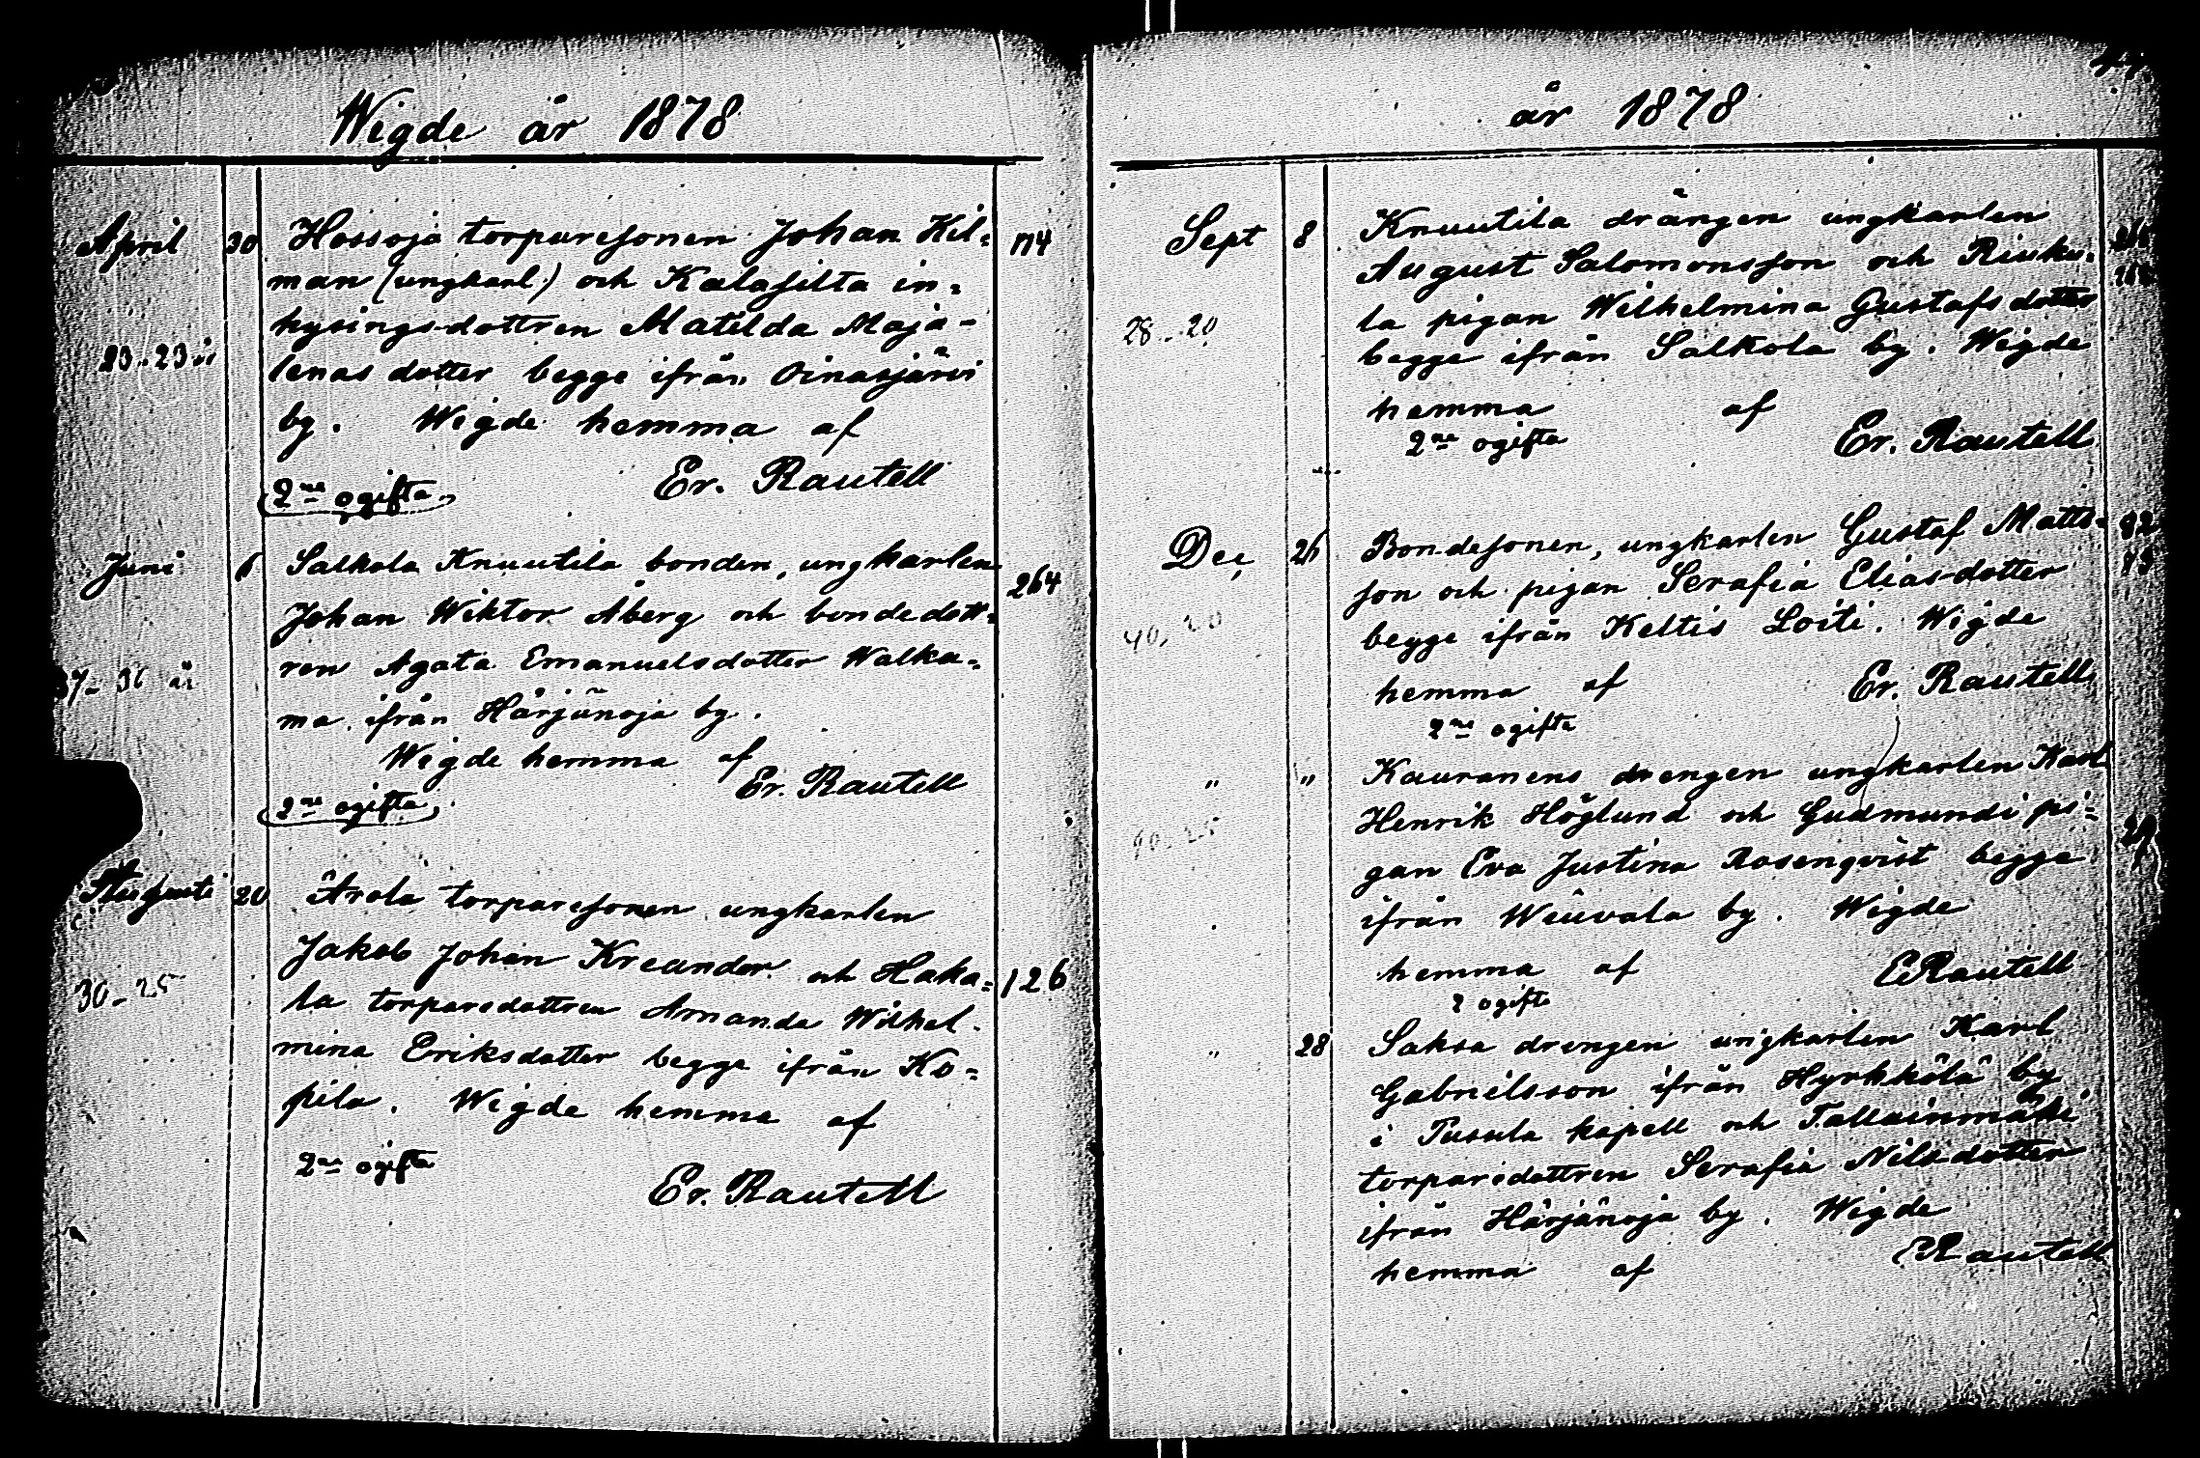 Wigde år 1878
April 30 Hossoja torparesonen Johan Kil= 114
man (ungkarl) och Kalasilta in=
hysingsdottren Matilda Maja-
23-23 år lenas dotter begge ifrån Oinasjärvi
by. Wigde hemma af
2ne ogifta Er. Rautell
Juni 6 Salkola Knuutila bonden, ungkarlen 264
Johan Wiktor Åberg och bondedott=
ren Agata Emanuelsdotter Walka=
37-36 år
ma ifrån Härjänoja by.
Wigde hemma af
2ne ogifta. Er. Rautell
20 Ärola torparesonen ungkarlen
Jakob Johan Kreander och Haka= 126
30-25 la torparedottren Amanda Wilhel-
mina Eriksdotter begge ifrån Ko=
pila. Wigde hemma af
2ne ogifta
Er. Rautell
år 1878
Sept 8 Knuutila drängen ungkarlen
August Salomonsson och Riuku=
28-20 la pigan Wilhelmina Gustafsdotter
begge ifrån Salkola by. Wigde
hemma af
2ne ogifta Er. Rautell
Dec 26 Bondesonen, ungkarlen Gustaf Matts= 82
son och pigan Serafia Eliasdotter
begge ifrån Keltis Loiti. Wigde
hemma af Er. Rautell
2ne ogifta
" " Kauranens drengen ungkarlen Karl
Henrik Höglund och Gudmundi pi=
gan Eva Justina Rosenqvist begge
ifrån Wiuvala by. Wigde
hemma af ERautell
2 ogifta
" 28 Saksa drengen ungkarlen Karl
Gabrielsson ifrån Hyrkkölä by
i Pusula kapell och Tallainmäki
torparedottren Serafia Nilsdotter
ifrån Härjänoja by. Wigde
hemma af ERautell